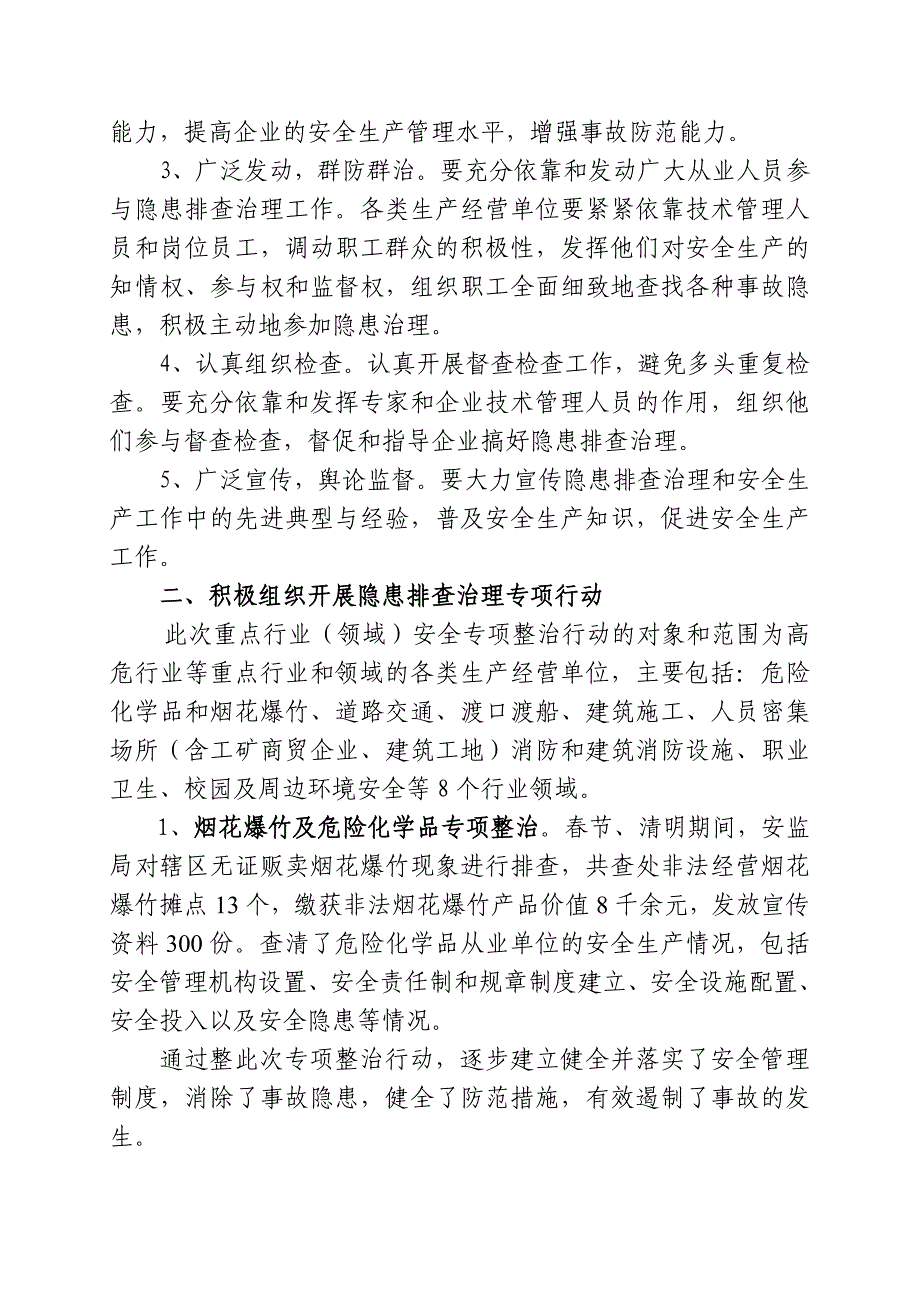 能力，提高企业的安全生产管理水平，增强事故防范能力。
3、广泛发动，群防群治。要充分依靠和发动广大从业人员参
与隐患排查治理工作。各类生产经营单位要紧紧依靠技术管理人
员和岗位员工，调动职工群众的积极性，发挥他们对安全生产的
知情权、参与权和监督权，组织职工全面细致地查找各种事故隐
患，积极主动地参加隐患治理。
4、认真组织检查。认真开展督查检查工作，避免多头重复检
查。要充分依靠和发挥专家和企业技术管理人员的作用，组织他
们参与督查检查，督促和指导企业搞好隐患排查治理。
5、广泛宣传，舆论监督。要大力宣传隐患排查治理和安全生
产工作中的先进典型与经验，普及安全生产知识，促进安全生产
工作。
二、积极组织开展隐患排查治理专项行动
此次重点行业（领域）安全专项整治行动的对象和范围为高
危行业等重点行业和领域的各类生产经营单位，主要包括：危险
化学品和烟花爆竹、道路交通、渡口渡船、建筑施工、人员密集
场所（含工矿商贸企业、建筑工地）消防和建筑消防设施、职业
卫生、校园及周边环境安全等 8 个行业领域。
1、烟花爆竹及危险化学品专项整治。春节、清明期间，安监
局对辖区无证贩卖烟花爆竹现象进行排查，共查处非法经营烟花
爆竹摊点 13 个，缴获非法烟花爆竹产品价值 8 千余元，发放宣传
资料 300 份。查清了危险化学品从业单位的安全生产情况，包括
安全管理机构设置、安全责任制和规章制度建立、安全设施配置、
安全投入以及安全隐患等情况。
通过整此次专项整治行动，逐步建立健全并落实了安全管理
制度，消除了事故隐患，健全了防范措施，有效遏制了事故的发
生。